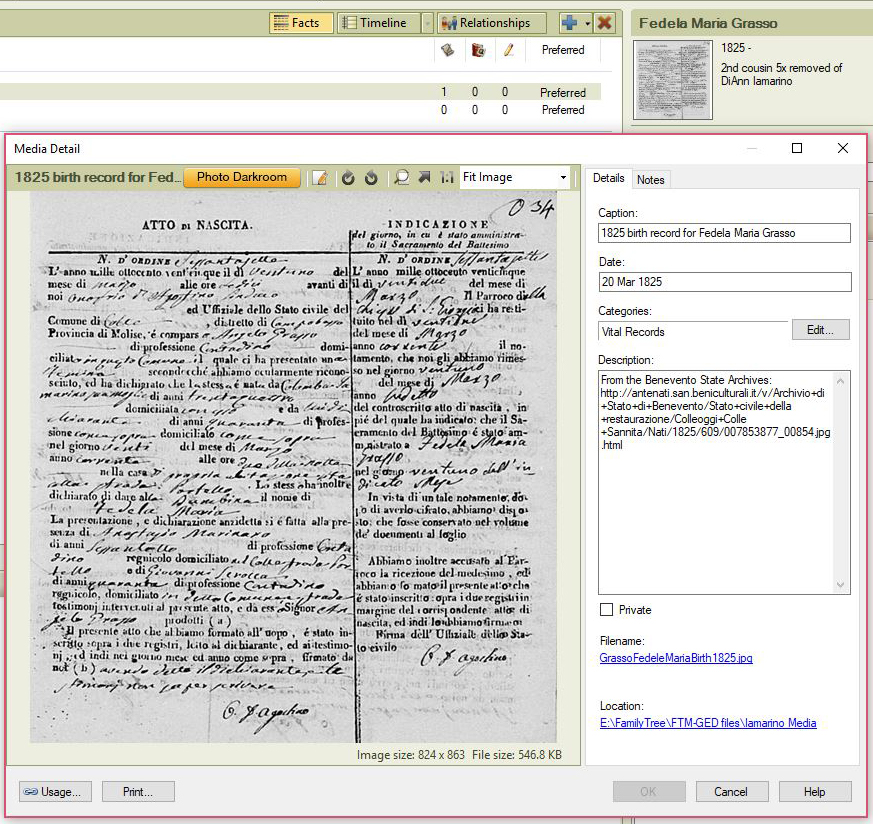 Facts Timeline Relationships
Preferred
1 0 0 Preferred
0 0 0 Preferred
Fedela Maria Grasso
1825 -
2nd cousin 5x removed of
DiAnn Iamarino
Media Detail
1825 birth record for Fed... Photo Darkroom 1:1 Fit Image
034
ATTO DI NASCITA.
N. D' ORDINE
L' anno mille ottocento venticinque il dì ventuno del
mese di marzo alle ore avanti di
noi
ed Uffiziale dello Stato civile del
Comune di Colle, distretto di Campobasso
Provincia di Molise, è comparso Angelo Grasso
di professione Contadino domi-
ciliato in questo Comune il quale ci ha presentato una
secondochè abbiamo ocularmente ricono-
sciuto, ed ha dichiarato che la stessa è nata da
di anni
domiciliata e da
di anni quaranta di profes-
sione domiciliato come sopra
nel giorno venti del mese di Marzo
anno corrente alle ore
nella casa di propria abitazione
Lo stesso ha inoltre
dichiarato di dare alla Bambina il nome di
Fedela Maria
La presentazione, e dichiarazione anzidetta si è fatta alla pre-
senza di Anastasio Marinaro
di anni di professione Conta
dino regnicolo domiciliato
e di Giovanni
di anni quaranta di professione Contadino
regnicolo, domiciliato
testimonj intervenuti al presente atto, e da esso Signor An
gelo Grasso prodotti ( a )
Il presente atto che abbiamo formato all' uopo, è stato in-
scritto sopra i due registri, letto al dichiarante, ed ai testimo-
nj, ed indi nel giorno mese ed anno come sopra, firmato da
noi ( b ) avendo detto il Dichiarante, e te
stimonj non saper scrivere
C. D'Agostino
INDICAZIONE
del giorno, in cui è stato amministra-
to il Sacramento del Battesimo
N. D' ORDINE
L' anno mille ottocento venticinque
il dì ventidue del mese di
Marzo Il Parroco della
chiesa di S. Giorgio ci ha resti-
tuito nel dì ventidue
del mese di Marzo
anno corrente il no-
tamento, che noi gli abbiamo rimes-
so nel giorno ventuno
del mese di Marzo
anno suddetto
del controscritto atto di nascita, in
piè del quale ha indicato; che il Sa-
cramento del Battesimo è stato am-
ministrato a Fedele Maria
Grasso
nel giorno ventuno dell'in
dicato Mese
In vista di un tale notamento, do-
po di averlo cifrato, abbiamo dispo-
sto; che fosse conservato nel volume
de' documenti al foglio
Abbiamo inoltre accusato al Par-
roco la ricezione del medesimo, ed
abbiamo formato il presente atto che
è stato inscritto sopra i due registri in
margine del corrispondente atto di
nascita, ed indi lo abbiamo firmato
Firma dell' Uffiziale dello Sta-
to civile
C. D'Agostino
Image size: 824 x 863 File size: 546.8 KB
Details Notes
Caption:
1825 birth record for Fedela Maria Grasso
Date:
20 Mar 1825
Categories:
Vital Records Edit...
Description:
From the Benevento State Archives:
http://antenati.san.beniculturali.it/v/Archivio+di
+Stato+di+Benevento/Stato+civile+della
+restaurazione/Colleoggi+Colle
+Sannita/Nati/1825/609/007853877_00854.jpg
.html
Private
Filename:
GrassoFedeleMariaBirth1825.jpg
Location:
E:\FamilyTree\FTM-GED files\Iamarino Media
Usage... Print... OK Cancel Help